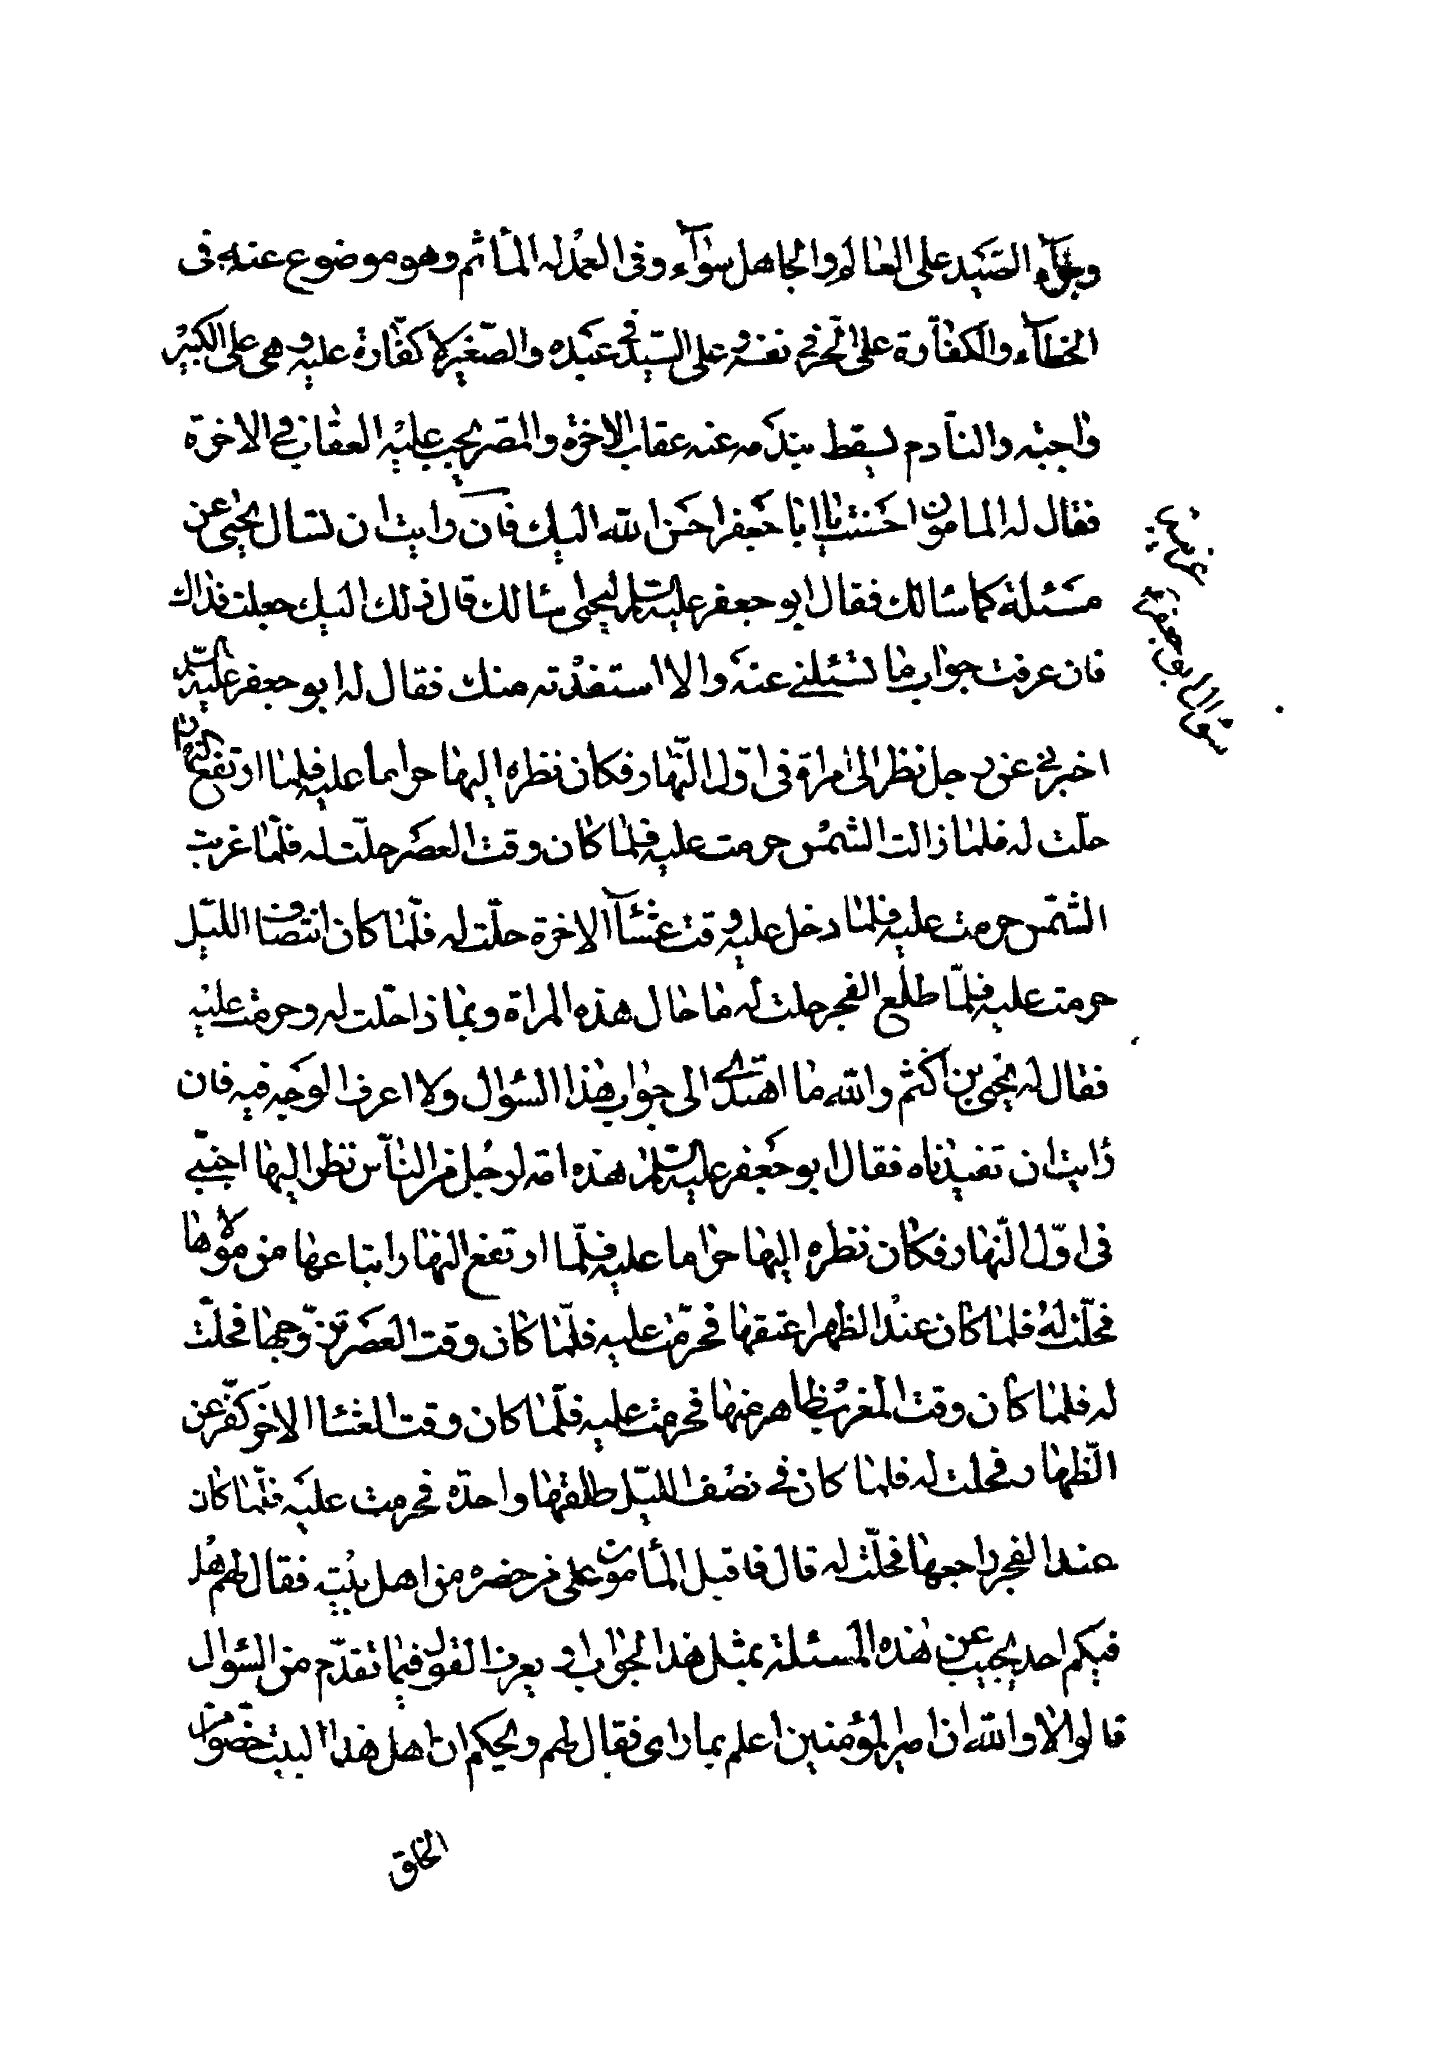 وجزآء الصّيد على العالم والجاهل سوآء وفى العمد له المأثم وهو موضوع عنه فى
الخطآء والكفّارة على الحرّ فى نفسه وعلى السّيد فى عبده والصّغير لا كفّارة عليه وهى على الكبير
واجبة والنّادم يسقط بندمه عنه عقاب الاخرة والمصرّ يجب عليه العقاب فى الاخرة
فقال له المامون احسنت يا ابا جعفر احسن الله اليك فان رايت ان تسال يحيى عن
مسئلة كما سالك فقال ابو جعفر عليه السّلم ليحيى اسالك قال ذلك اليك جعلت فداك
فان عرفت جواب ما تسئلنى عنه والا استفدته منك فقال له ابو جعفر عليه السّلم
اخبرنى عن رجل نظر الى امراة فى اوّل النّهار فكان نظره اليها حراما عليه فلما ارتفع النّهار
حلّت له فلما زالت الشّمس حرمت عليه فلمّا كان وقت العصر حلّت له فلمّا غربت
الشّمس حرمت عليه فلما دخل عليه وقت عشآء الاخرة حلّت له فلمّا كان انتصاف اللّيل
حرمت عليه فلمّا طلع الفجر حلت له ما حال هذه المراة وبماذا حلّت له وحرمت عليه
فقال له يحيى بن اكثم والله ما اهتدى الى جواب هذا السّؤال ولا اعرف الوجه فيه فان
رايت ان تفيدناه فقال ابو جعفر عليه السّلم هذه امة لرجل من النّاس نظر اليها اجنبىّ
فى اوّل النّهار فكان نظره اليها حراما عليه فلمّا ارتفع النهار ابتاعها من مولاها
فحلّت له فلمّا كان عند الظهر اعتقها فحرّمت عليه فلمّا كان وقت العصر تزوّجها فحلّت
له فلمّا كان وقت المغرب ظاهر منها فحرمت عليه فلمّا كان وقت العشاء الاخر كفّر عن
الظّهار فحلت له فلما كان فى نصف اللّيل طلقها واحدة فحرمت عليه فلمّا كان
عند الفجر راجعها فحلّت له قال فاقبل المأمون على من حضره من اهل بيته فقال لهم هل
فيكم احد يجيب عن هذه المسئلة بمثل هذا الجواب او يعرف القول فيما تقدّم من السّؤال
قالوا لا والله ان امير المؤمنين اعلم بما راى فقال لهم ويحكم ان اهل هذا البيت خصّوا من
الخلق
سؤال ابو جعفر ع